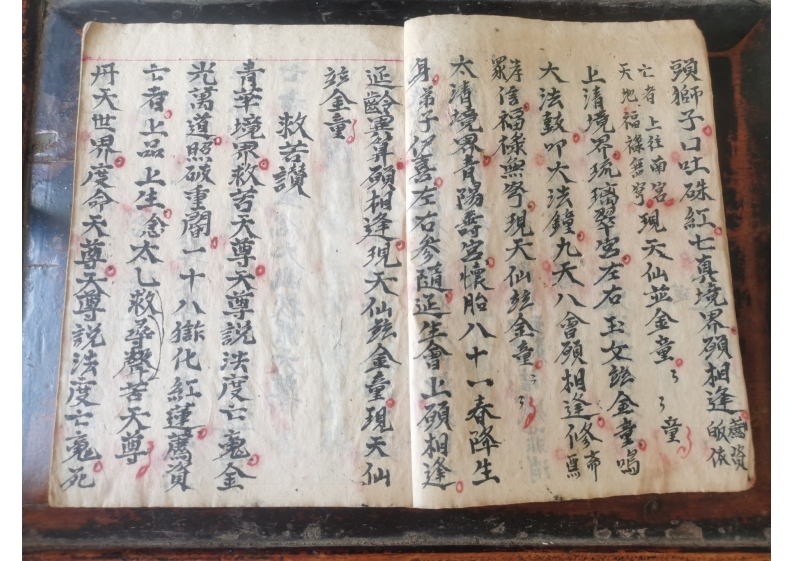 頭獅子口吐硃紅七真境界願相逢薦資皈依
亡者上往南宮
天地福祿無窮現天仙並金童〻〻童
上清境界琉璃翠宮左右玉女玆金童鳴
大法鼓叩大法鐘九天八會願相逢修齋
孝信福祿無窮現天仙玆金童〻〻
眾
太清境界青陽壽宮懷胎八十一春降生
身弟子伊喜左右參隨延生會上願相逢
延齡異算願相逢現天仙玆金童現天仙
玆金童
救苦讚
青華境界救苦天尊天尊説法度亡魂金
光萬道照破重關一十八獄化紅蓮薦資
亡者上品上生念太乙救尋聲苦天尊
丹天世界度命天尊天尊説法度亡魂死